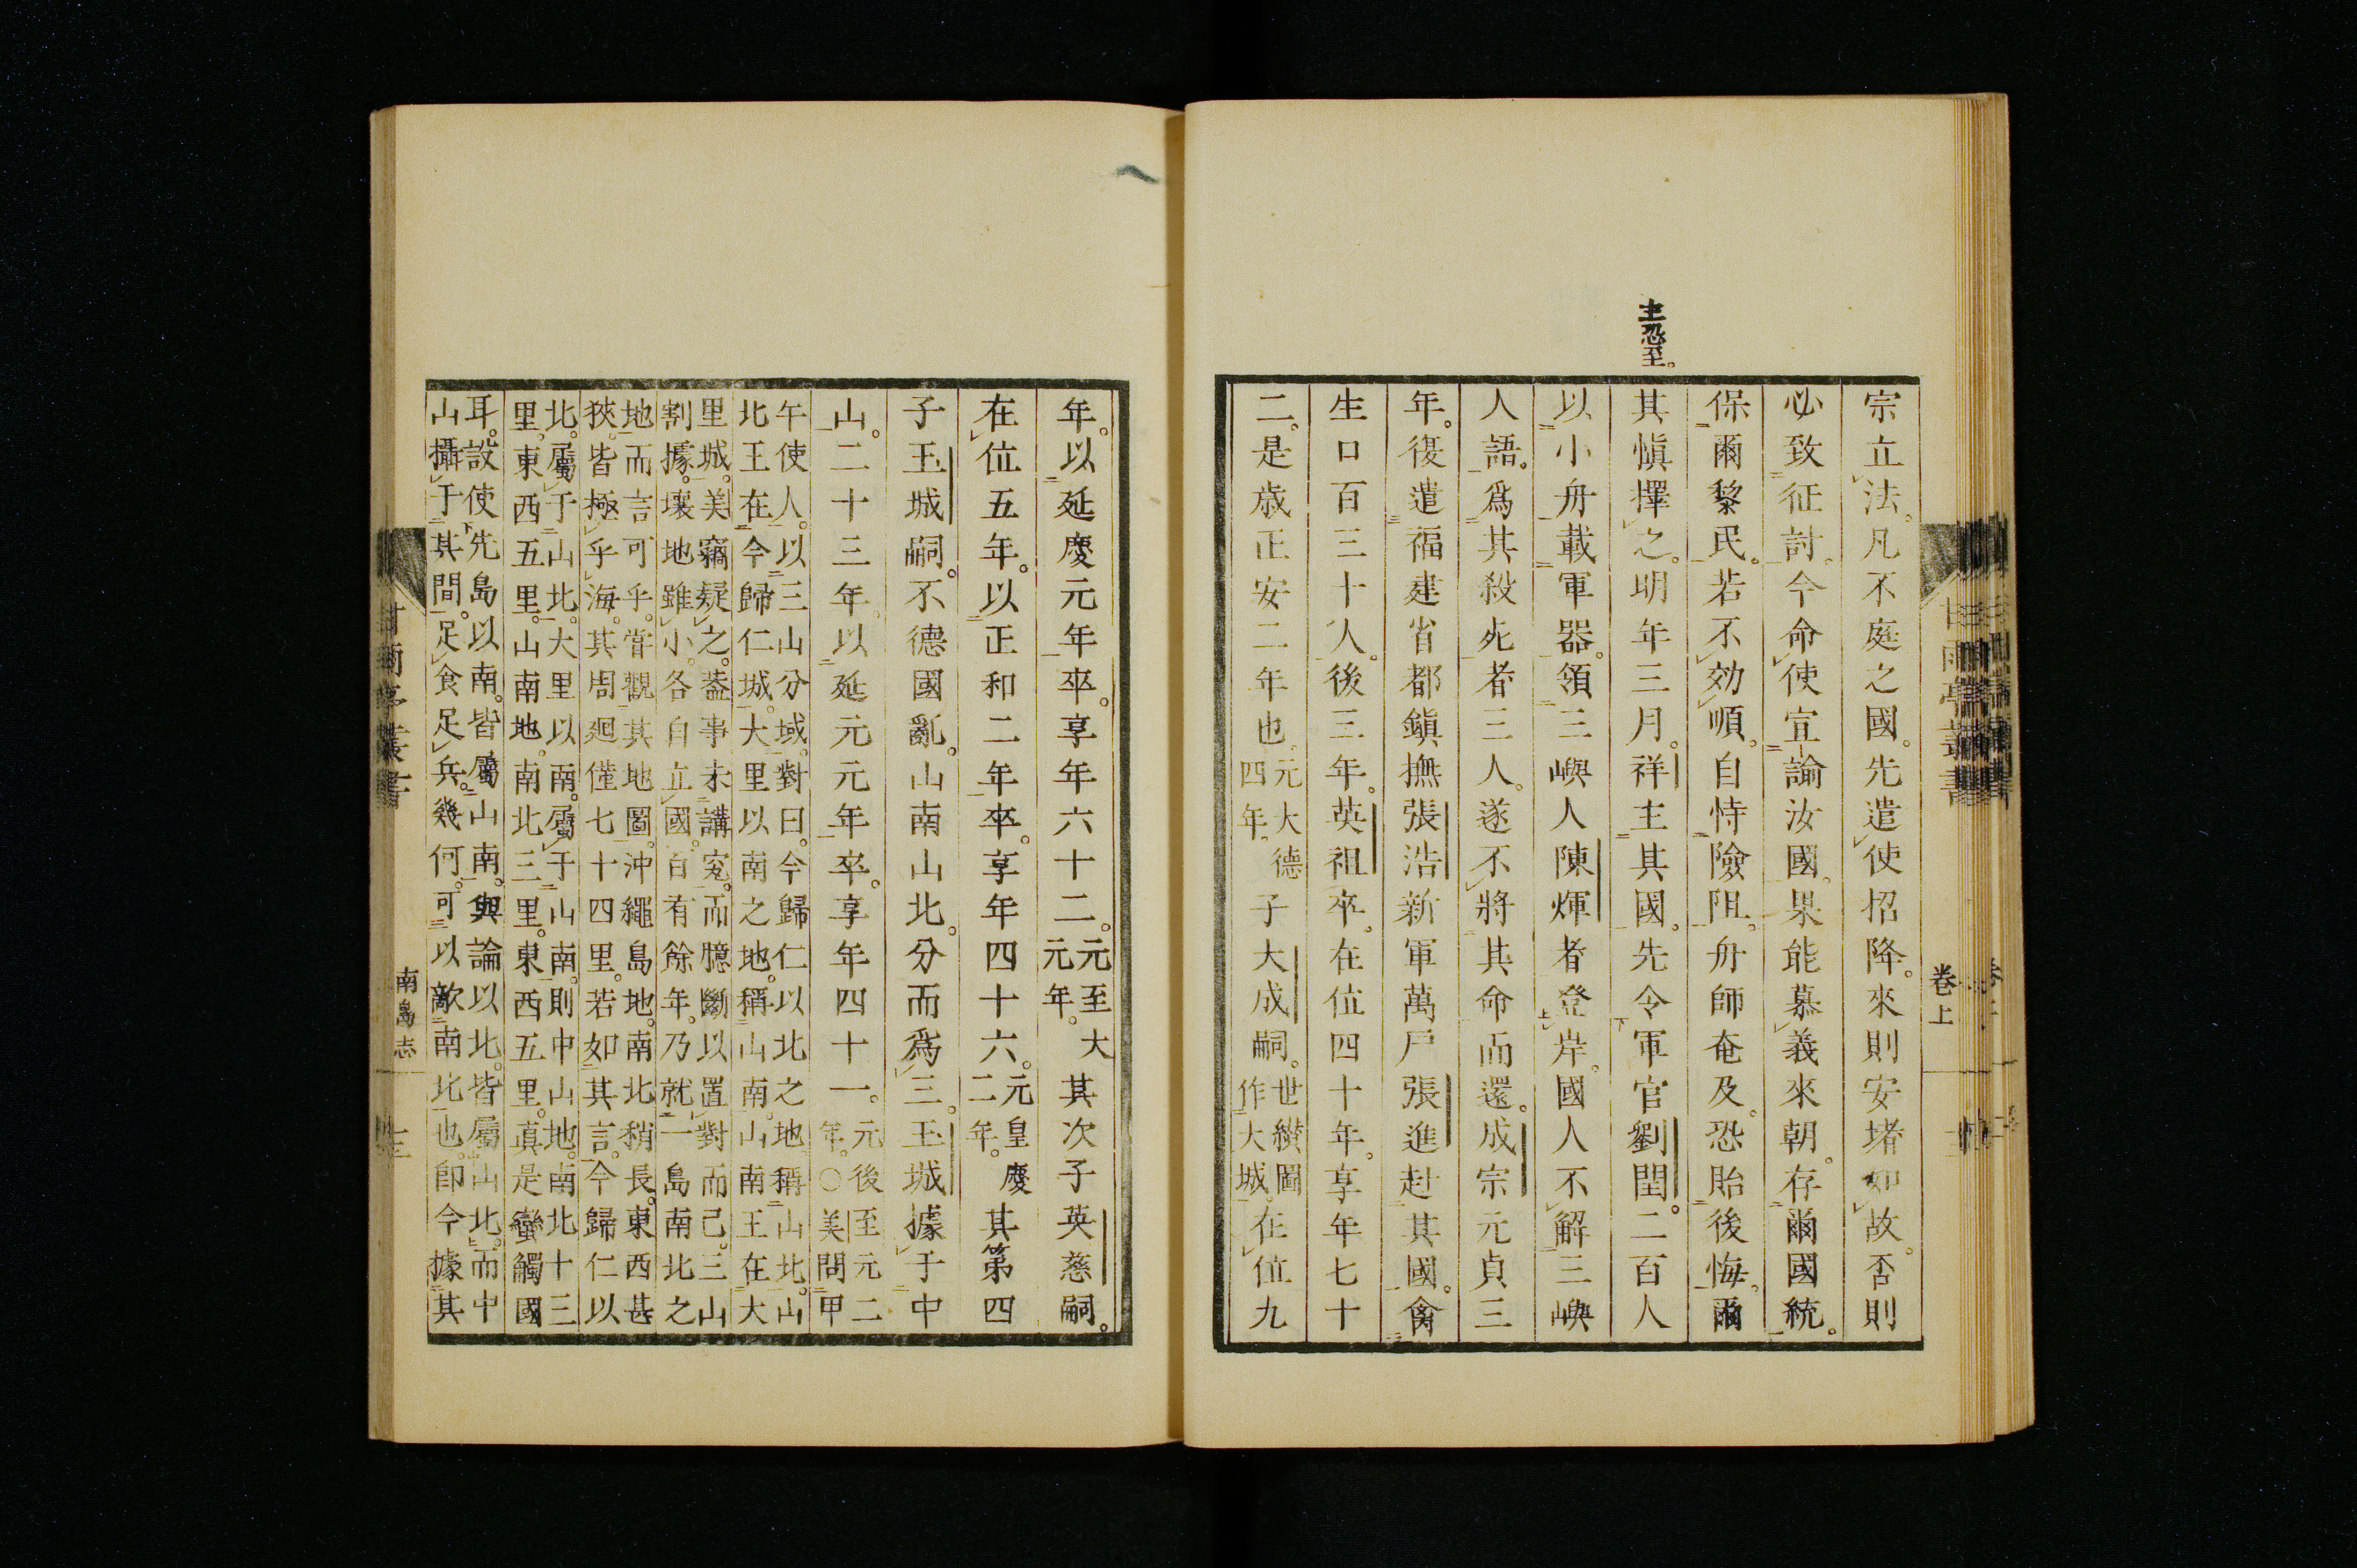 主恐至。
宗立法。凡不庭之國。先遣使招降。來則安堵如故。否則
必致征討。今命使宣諭汝國。果能慕義來朝。存爾國統。
保爾黎民。若不効順。自恃險阻。舟師奄及。恐貽後悔。爾
其愼擇之。明年三月。祥主其國。先令軍官劉閏。二百人
以小舟載軍器。領三嶼人陳煇者登岸。國人不解三嶼
人語。爲其殺死者三人。遂不將其命而還。成宗元貞三
年。復遣福建省都鎭撫張浩新軍萬戸張進赴其國。禽
生口百三十人。後三年。英祖卒。在位四十年。享年七十
二。是歳正安二年也。元大德四年。子大成嗣。世纉圖作大城。在位九
卷上
甘雨亭叢書
年。以延慶元年卒。享年六十二。元至大元年。其次子英慈嗣。
在位五年。以正和二年卒。享年四十六。元皇慶二年。其第四
子玉城嗣。不德國亂。山南山北。分而爲三。玉城據于中
山。二十三年。以延元元年卒。享年四十一。元後至元二年。○美問甲
午使人。以三山分域。對曰。今歸仁以北之地。稱山北。山
北王在今歸仁城。大里以南之地。稱山南。山南王在大
里城。美竊疑之。葢事未講究。而臆斷以置對而已。三山
割據。壤地雖小。各自立國。百有餘年。乃就一島南北之
地而言可乎。甞觀其地圖。沖繩島地。南北稍長。東西甚
狹。皆極乎海。其周廻僅七十四里。若如其言。今歸仁以
北。屬于山北。大里以南。屬于山南。則中山地。南北十三
里。東西五里。山南地。南北三里。東西五里。眞是蠻觸國
耳。設使先島以南。皆屬山南。與論以北。皆屬山北。而中
山攝于其間。足食足兵。幾何。可以敵南北也。卽今據其
南島志